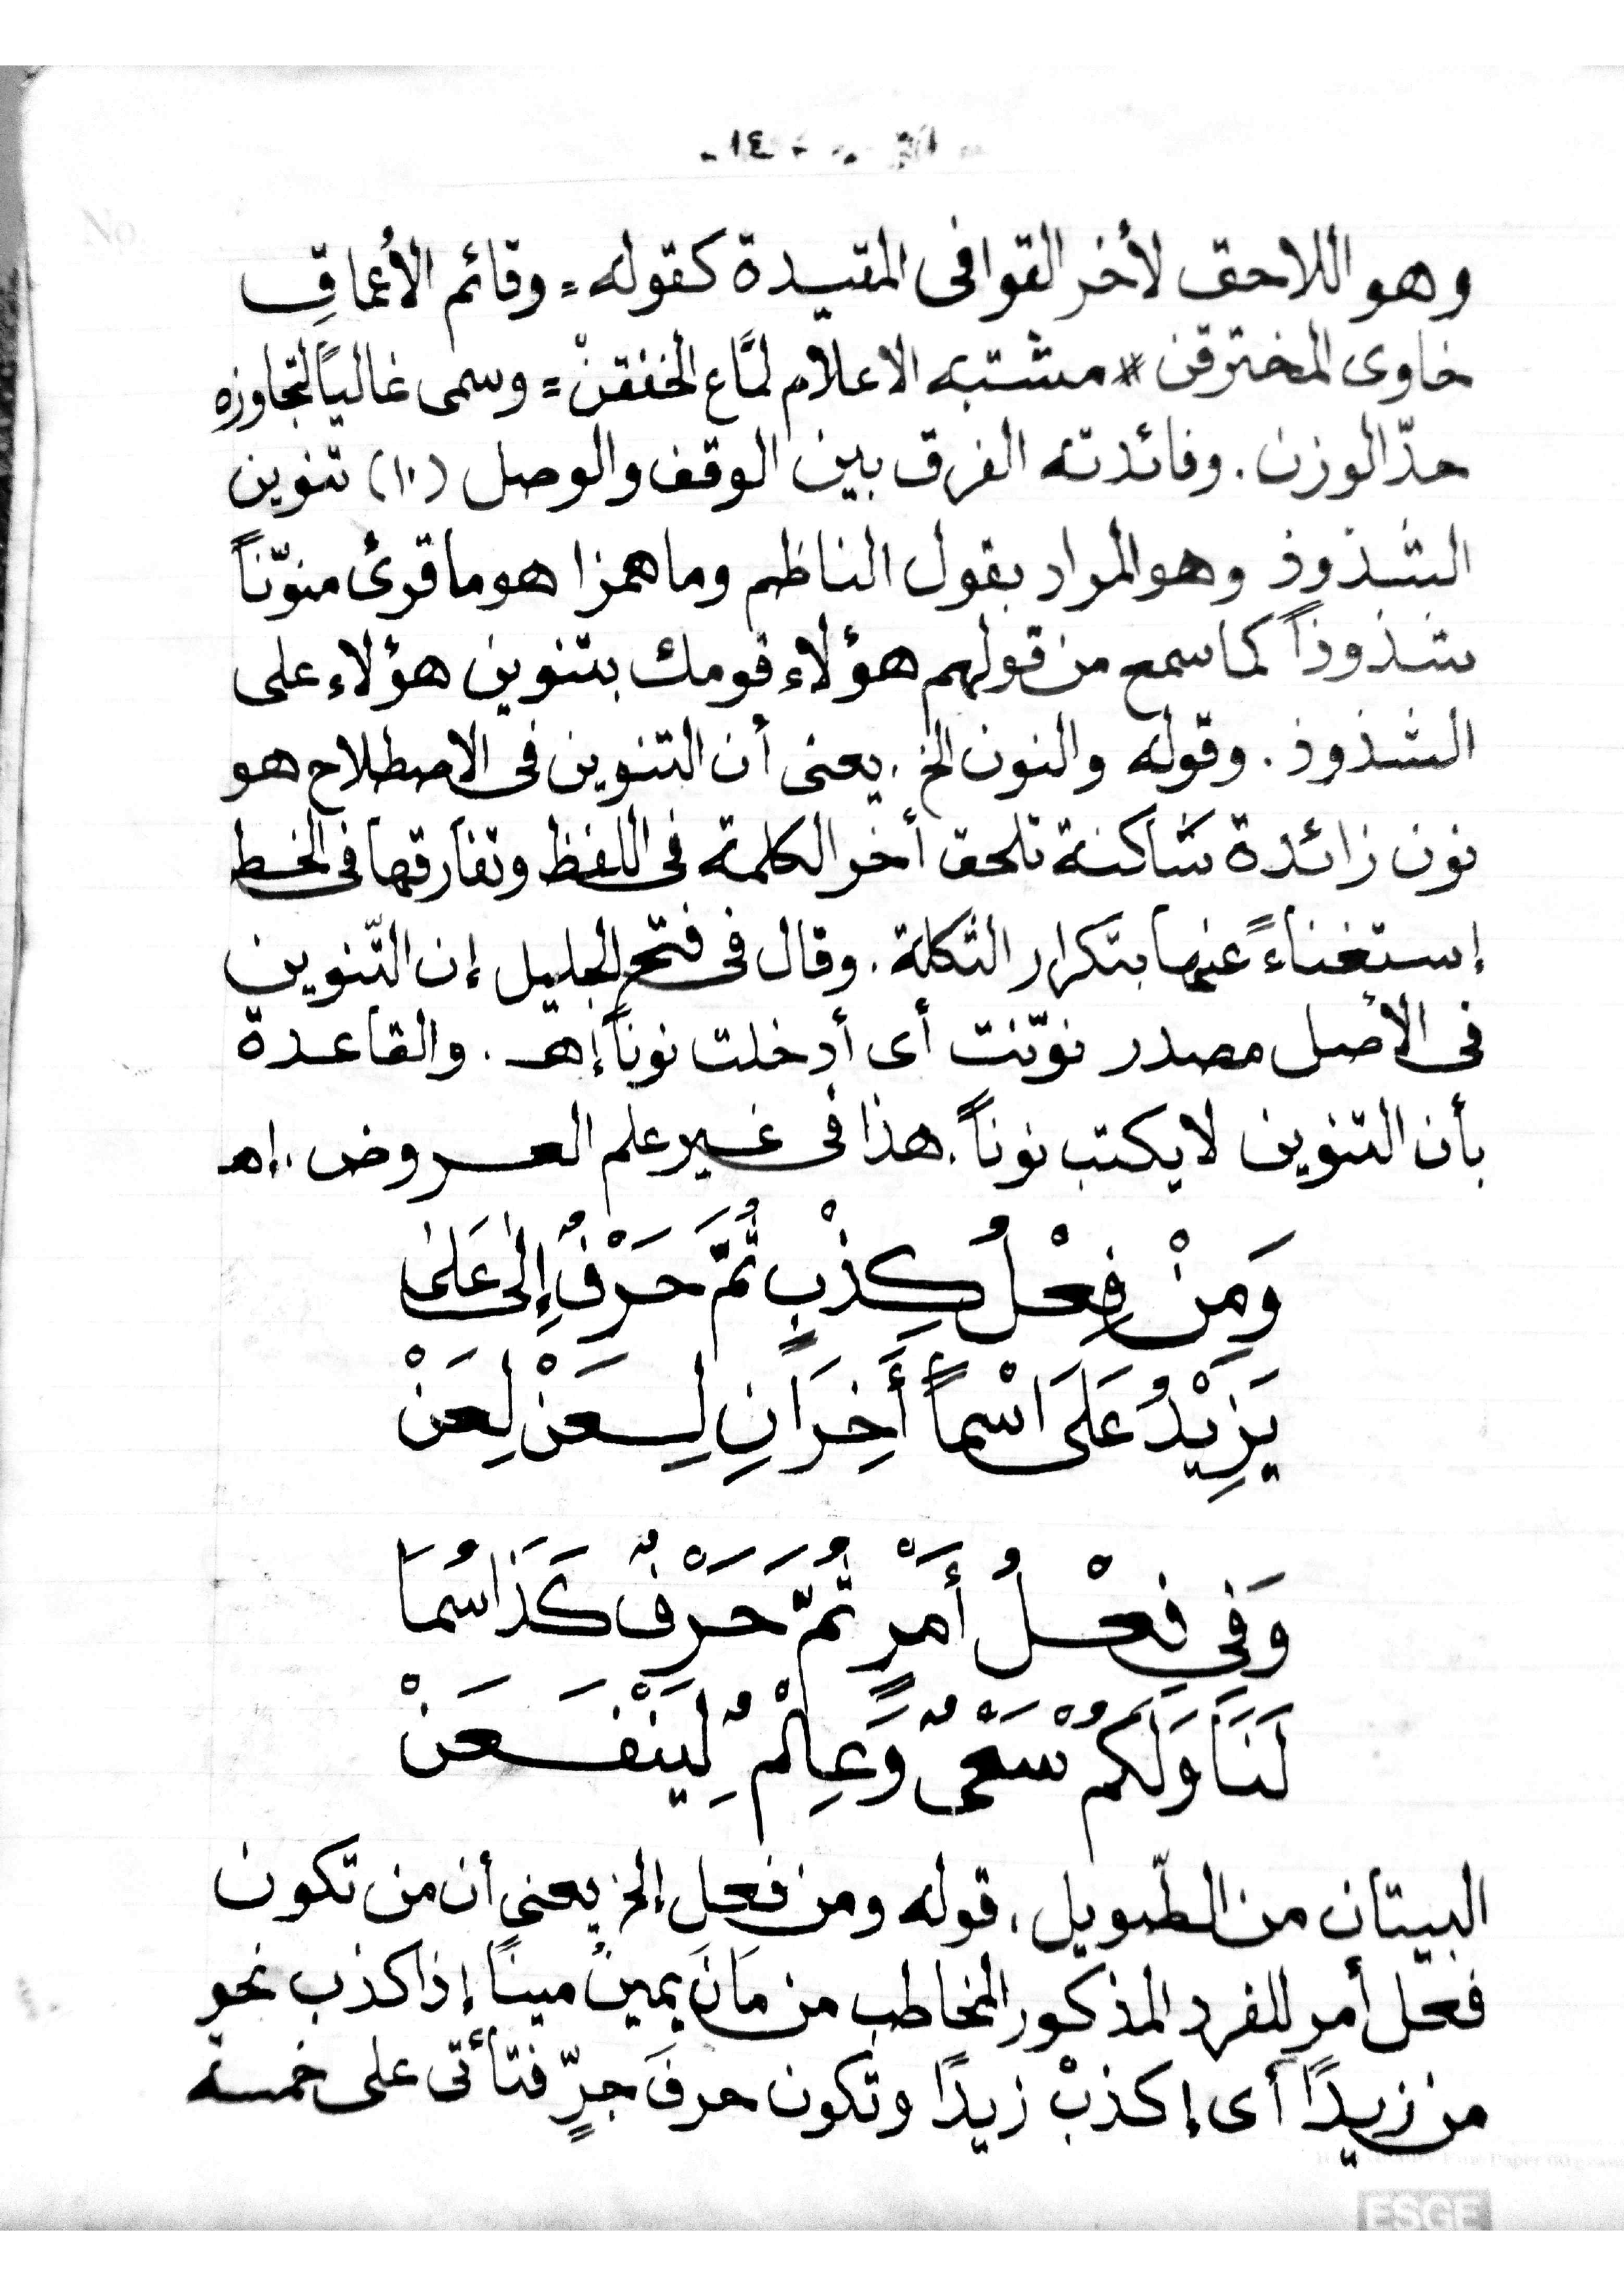 - ١٤ -
وهو اللاحق لأخر القوافى المقيدة كقوله = وقائم الأعماقِ
خاوى المخترقن * مشتبه الاعلام لمَّاع الخفقنْ = وسمى غالياً لتجاوزه
حدّ الوزن . وفائدته الفرق بين الوقف والوصل (١٠) تنوين
الشذوذ وهو المراد بقول الناظم وما همزا هو ما قرئ منوّناً
شذوذاً كما سمع من قولهم هؤلاء قومك بتنوين هؤلاء على
الشذوذ . وقوله والنون الخ . يعنى أن التنوين فى الاصطلاح هو
نون زائدة ساكنة تلحق أخر الكلمة فى اللفظ وتفارقها فى الخط
إستغناءً عنها بتكرار الشكلة . وقال فى فتح الجليل إن التّنوين
فى الأصل مصدر نوّنت أى أدخلت نوناً إهـ . والقاعدة
بأن التنوين لا يكتب نوناً . هذا فى غير علم العروض . إهـ
وَمِنْ فِعْلُ كِذْبٍ ثُمَّ حَرْفٌ إِلَى عَلَى
يَزِيْدُ عَلَى اسْماً أَخِرَانِ لِسَعَنْ لِعَنْ
وَفِي فِعْلُ أَمْرٍ ثُمَّ حَرْفٌ كَذَا سُمَا
لَنَا وَلَكُمْ سَعْىٌ وَعِالْمٌ لِيَنْفَعَنْ
البيتان من الطّويل . قوله ومن فعل إلخ يعنى أن من تكون
فعل أمر للفرد المذكور المخاطب من مَانَ يمينُ مينًا إذا كذب نحو
من زيدًا أى إكذبْ زيدًا وتكون حرفَ جرٍّ فتأتى على خمسة
ESGE